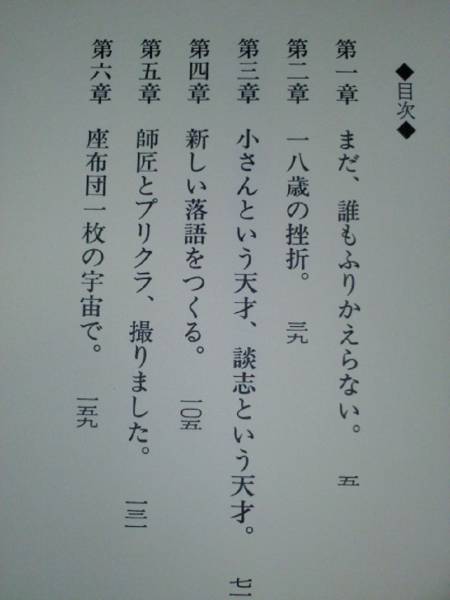 ◆目次◆
第一章 まだ、誰もふりかえらない。 五
第二章 一八歳の挫折。 三九
第三章 小さんという天才、談志という天才。 七一
第四章 新しい落語をつくる。 一〇五
第五章 師匠とプリクラ、撮りました。 一三一
第六章 座布団一枚の宇宙で。 一五九